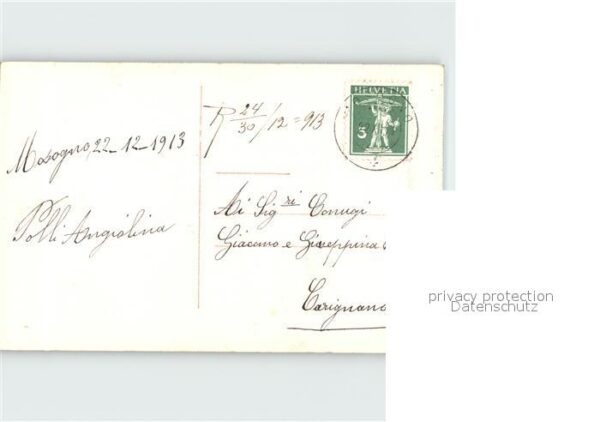 Mosogno, 22-12-1913
Polli Angiolina
R 24/30 / 12 = 913
HELVETIA
3
Ai Sig.ri Conugi
Giacomo e Giuseppina
Carignano
privacy protection
Datenschutz